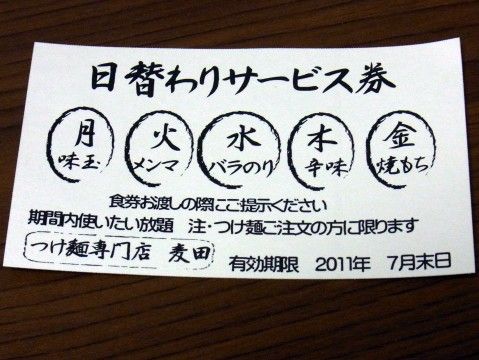 日替わりサービス券
月 火 水 木 金
味玉 メンマ バラのり 辛味 焼もち
食券お渡しの際にご提示ください
期間内使いたい放題 注・つけ麺ご注文の方に限ります
つけ麺専門店 麦田 有効期限 2011年 7月末日